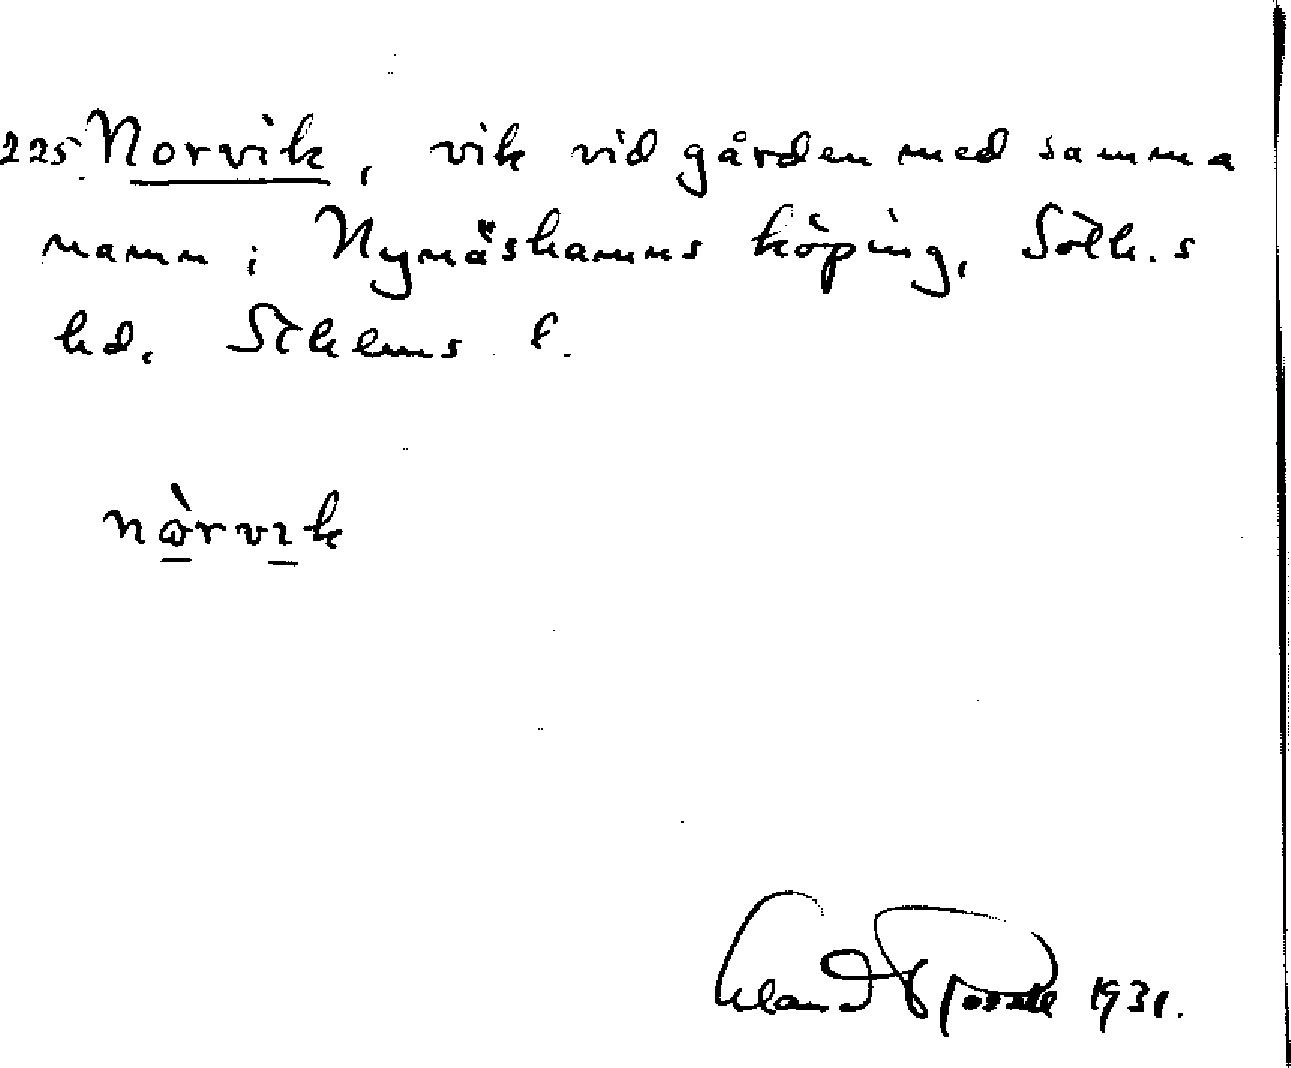 225 Norvik, vik vid gården med samma
namn i Nynäshamns köping, Soth.s
hd. Sthlms l.
nòrvik
1931.